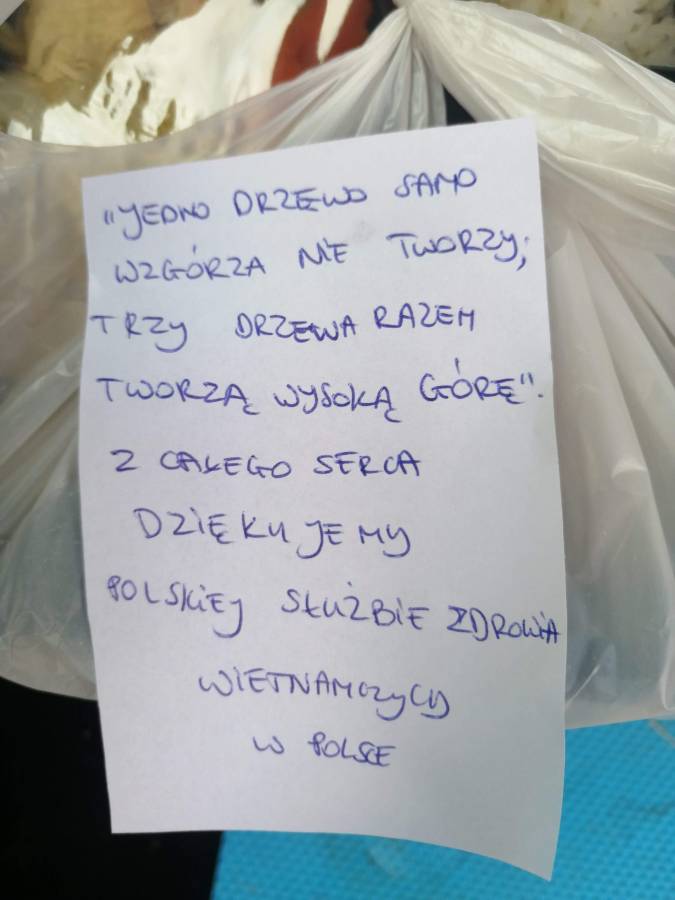 "JEDNO DRZEWO SAMO
WZGÓRZA NIE TWORZY;
TRZY DRZEWA RAZEM
TWORZĄ WYSOKĄ GÓRĘ".
Z CAŁEGO SERCA
DZIĘKUJEMY
POLSKIEJ SŁUŻBIE ZDROWIA
WIETNAMCZYCY
W POLSCE